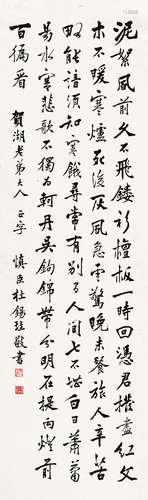 泥絮風前久不飛鏤衫檀板一時回憑君撥盡紅文
木不暖寒爐死後灰風急雪驚晚未餐旅人辛苦
略能諳須知寒餓尋常有別了人間七不堪白日蕭蕭
易水寒悲歌不獨為荊丹吳鉤錦帶分明在提向燈前
百徧看 賀湖老弟大人正字 慎臣杜錫珪敬書